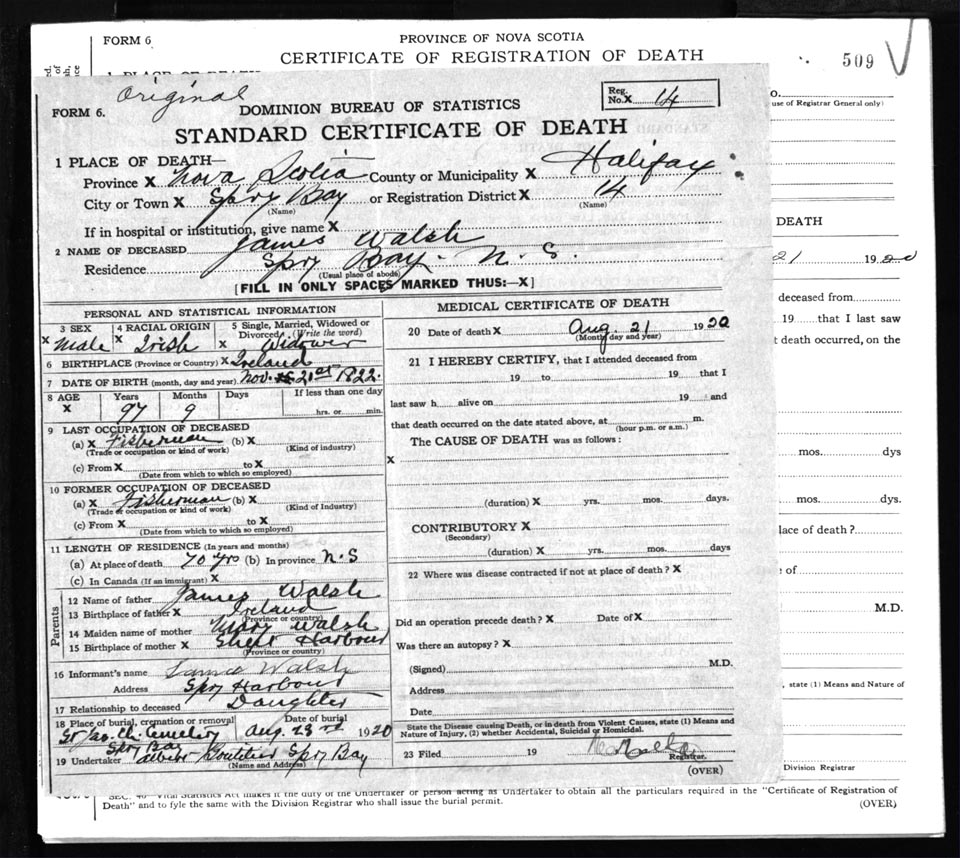 FORM 6
PROVINCE OF NOVA SCOTIA
CERTIFICATE OF REGISTRATION OF DEATH
509
use of Registrar General only)
DEATH
21 1920
deceased from
19 that I last saw
death occurred, on the
mos. dys
mos. dys.
lace of death?
of
M.D.
, state (1) Means and Nature of
Division Registrar
Original
FORM 6.
DOMINION BUREAU OF STATISTICS
Reg. No. X 14
STANDARD CERTIFICATE OF DEATH
1 PLACE OF DEATH—
Province X Nova Scotia County or Municipality X Halifax
City or Town X Spry Bay or Registration District X 14
(Name) (Name)
If in hospital or institution, give name X
2 NAME OF DECEASED James Walsh
Residence Spry Bay. N. S.
(Usual place of abode)
[FILL IN ONLY SPACES MARKED THUS:—X]
PERSONAL AND STATISTICAL INFORMATION
3 SEX 4 RACIAL ORIGIN 5 Single, Married, Widowed or Divorced (Write the word)
X Male X Irish X Widower
6 BIRTHPLACE (Province or Country) X Ireland
7 DATE OF BIRTH (month, day and year). Nov. 21st 1822.
8 AGE Years Months Days If less than one day
X 97 9 hrs. or min.
9 LAST OCCUPATION OF DECEASED
(a) X Fisherman (b) X
(Trade or occupation or kind of work) (Kind of industry)
(c) From X to X
(Date from which to which so employed)
10 FORMER OCCUPATION OF DECEASED
(a) X Fisherman (b) X
(Trade or occupation or kind of work) (Kind of Industry)
(c) From X to X
(Date from which to which so employed)
11 LENGTH OF RESIDENCE (In years and months)
(a) At place of death 70 yrs (b) In province N.S
(c) In Canada (If an immigrant) X
Parents
12 Name of father James Walsh
13 Birthplace of father X Ireland
(Province or country)
14 Maiden name of mother Mary Walsh
15 Birthplace of mother X Sheet Harbour
(Province or country)
16 Informant's name Walsh
Address Spry Harbour
17 Relationship to deceased Daughter
18 Place of burial, cremation or removal Date of burial
Cemetery Aug. 23rd 1920
Spry Bay
19 Undertaker Spry Bay
(Name and Address)
MEDICAL CERTIFICATE OF DEATH
20 Date of death X Aug. 21 1920
(Month, day and year)
21 I HEREBY CERTIFY, that I attended deceased from
19 to 19 that I
last saw h alive on 19 and
that death occurred on the date stated above, at m.
(hour p.m. or a.m.)
The CAUSE OF DEATH was as follows:
X
(duration) X yrs. mos. days.
CONTRIBUTORY X
(Secondary)
(duration) X yrs. mos. days
22 Where was disease contracted if not at place of death? X
Did an operation precede death? X Date of X
Was there an autopsy? X
(Signed) M.D.
Address
Date
State the Disease causing Death, or in death from Violent Causes, state (1) Means and
Nature of Injury, (2) whether Accidental, Suicidal or Homicidal.
23 Filed 19
Registrar.
(OVER)
Vital Statistics Act makes it the duty of the Undertaker or person acting as Undertaker to obtain all the particulars required in the "Certificate of Registration of
Death" and to fyle the same with the Division Registrar who shall issue the burial permit.
(OVER)